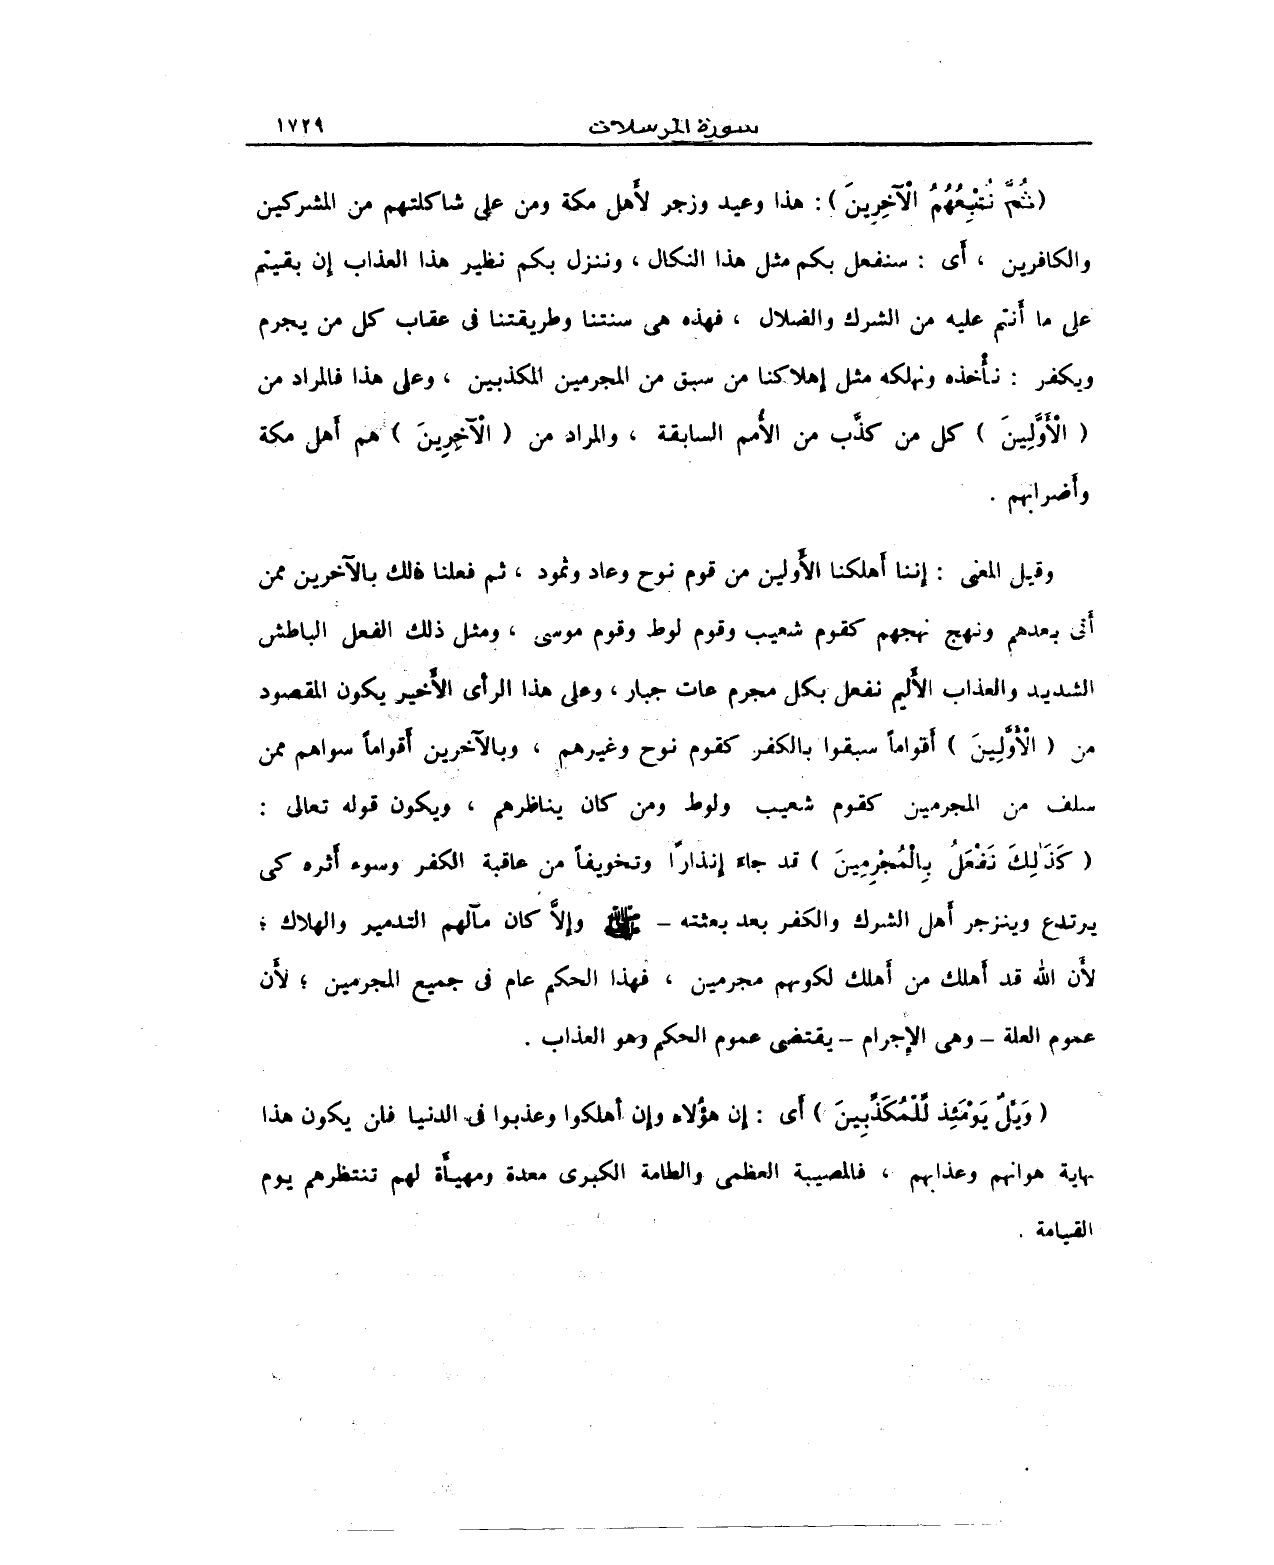 سورة المرسلات ١٧٢٩
(ثُمَّ نُتْبِعُهُمُ الْآخِرِينَ) : هذا وعيد وزجر لأَهل مكة ومن على شاكلتهم من المشركين
والكافرين ، أَى : سنفعل بكم مثل هذا النكال ، وننزل بكم نظير هذا العذاب إن بقيتم
على ما أَنتم عليه من الشرك والضلال ، فهذه هى سنتنا وطريقتنا فى عقاب كل من يجرم
ويكفر : نأْخذه ونهلكه مثل إهلاكنا من سبق من المجرمين المكذبين ، وعلى هذا فالمراد من
( الْأَوَّلِينَ ) كل من كذَّب من الأُمم السابقة ، والمراد من ( الْآخِرِينَ ) هم أَهل مكة
وأَضرابهم .
وقيل المعنى : إننا أَهلكنا الأَولين من قوم نوح وعاد وثمود ، ثم فعلنا ذلك بالآخرين ممن
أَتى بعدهم ونهج نهجهم كقوم شعيب وقوم لوط وقوم موسى ، ومثل ذلك الفعل الباطش
الشديد والعذاب الأَليم نفعل بكل مجرم عات جبار ، وعلى هذا الرأى الأَخير يكون المقصود
من ( الْأَوَّلِينَ ) أَقواماً سبقوا بالكفر كقوم نوح وغيرهم ، وبالآخرين أَقواماً سواهم ممن
سلف من المجرمين كقوم شعيب ولوط ومن كان يناظرهم ، ويكون قوله تعالى :
( كَذَٰلِكَ نَفْعَلُ بِالْمُجْرِمِينَ ) قد جاء إنذارًا وتخويفاً من عاقبة الكفر وسوء أَثره كى
يرتدع وينزجر أَهل الشرك والكفر بعد بعثته – ﷺ وإلاَّ كان مآلهم التدمير والهلاك ؛
لأَن الله قد أَهلك من أَهلك لكونهم مجرمين ، فهذا الحكم عام فى جميع المجرمين ؛ لأَن
عموم العلة – وهى الإجرام – يقتضى عموم الحكم وهو العذاب .
( وَيْلٌ يَوْمَئِذٍ لِّلْمُكَذِّبِينَ ) أَى : إن هؤلاء وإن أهلكوا وعذبوا فى الدنيا فلن يكون هذا
نهاية هوانهم وعذابهم ، فالمصيبة العظمى والطامة الكبرى معدة ومهيأَة لهم تنتظرهم يوم
القيامة .